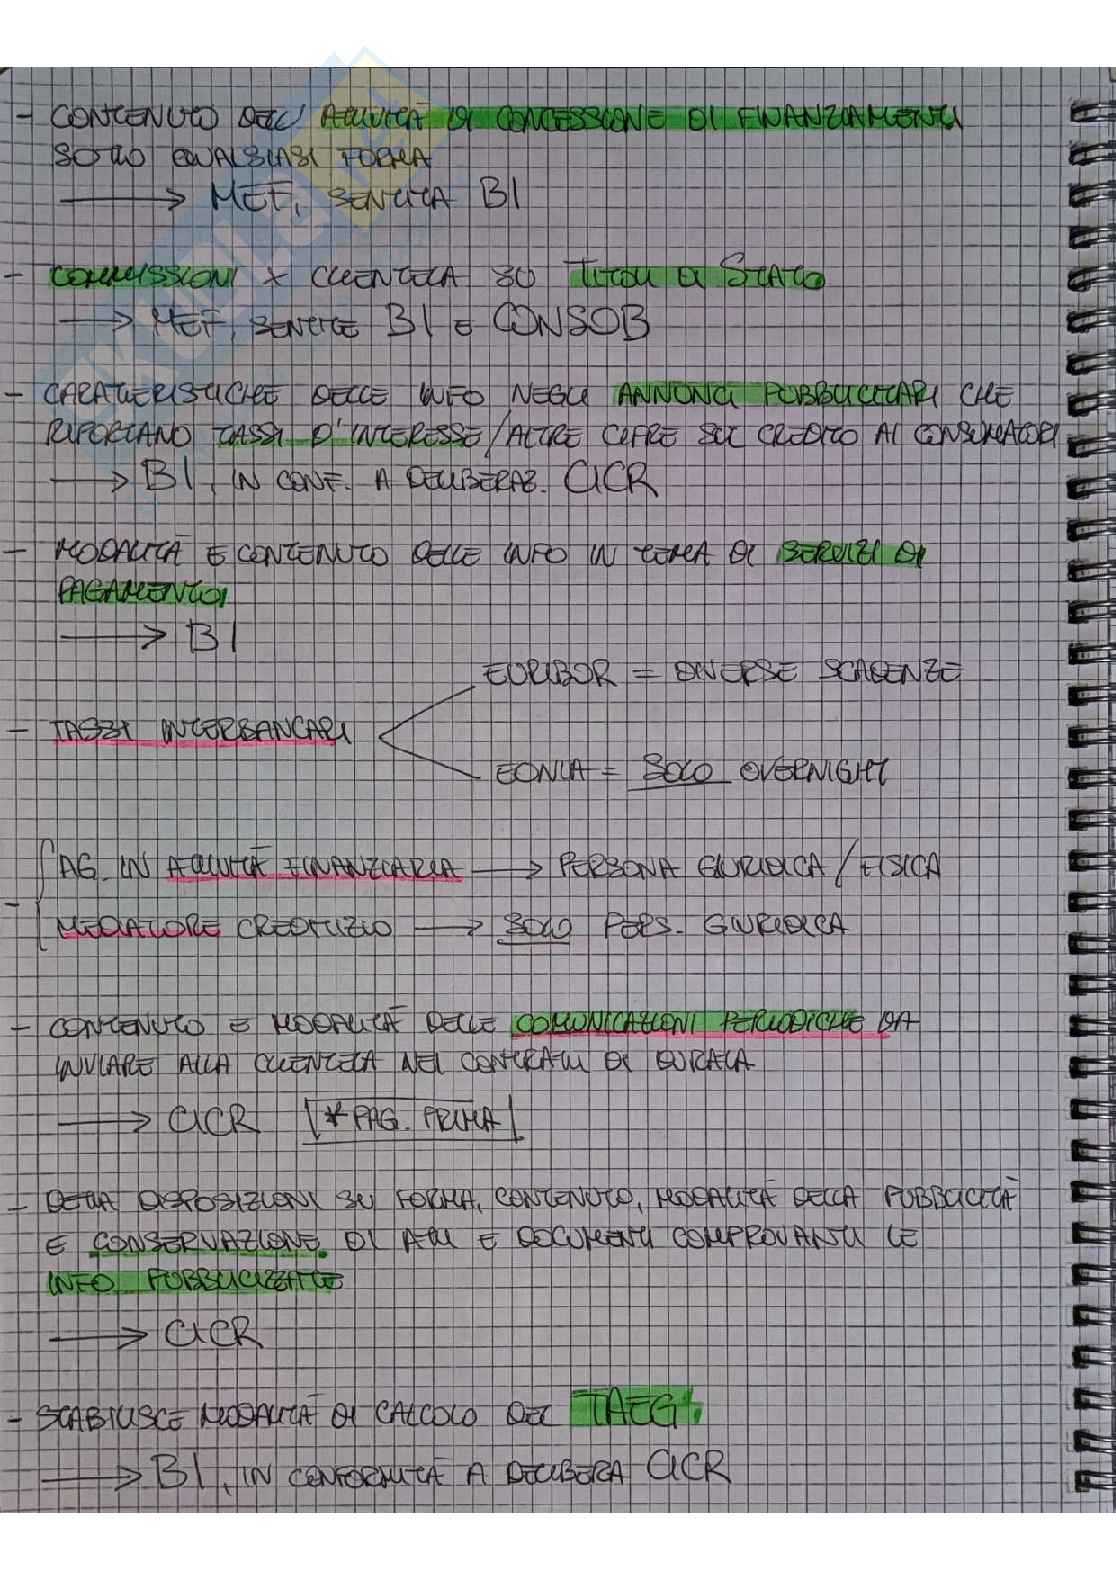 - CONTENUTO DELL' ATTIVITÀ DI CONCESSIONE DI FINANZIAMENTI
SOTTO QUALSIASI FORMA
→ MEF, SENTITA BI
- COMMISSIONI X CLIENTELA SU TITOLI DI STATO
→ MEF, SENTITE BI E CONSOB
- CARATTERISTICHE DELLE INFO NEGLI ANNUNCI PUBBLICITARI CHE
RIPORTANO TASSI D'INTERESSE/ALTRE CIFRE SUL CREDITO AI CONSUMATORI
→ BI, IN CONF. A DELIBERAZ. CICR
- MODALITÀ E CONTENUTO DELLE INFO IN TEMA DI SERVIZI DI
PAGAMENTO
→ BI
EURIBOR = DIVERSE SCADENZE
- TASSI INTERBANCARI
EONIA = SOLO OVERNIGHT
AG. IN ATTIVITÀ FINANZIARIA → PERSONA GIURIDICA/FISICA
- MEDIATORE CREDITIZIO → SOLO PERS. GIURIDICA
- CONTENUTO E MODALITÀ DELLE COMUNICAZIONI PERIODICHE DA
INVIARE ALLA CLIENTELA NEI CONTRATTI DI DURATA
→ CICR * PAG. PRIMA
- DETTA DISPOSIZIONI SU FORMA, CONTENUTO, MODALITÀ DELLA PUBBLICITÀ
E CONSERVAZIONE DI ATTI E DOCUMENTI COMPROVANTI LE
INFO PUBBLICIZZATE
→ CICR
- STABILISCE MODALITÀ DI CALCOLO DEL TAEG
→ BI, IN CONFORMITÀ A DELIBERA CICR